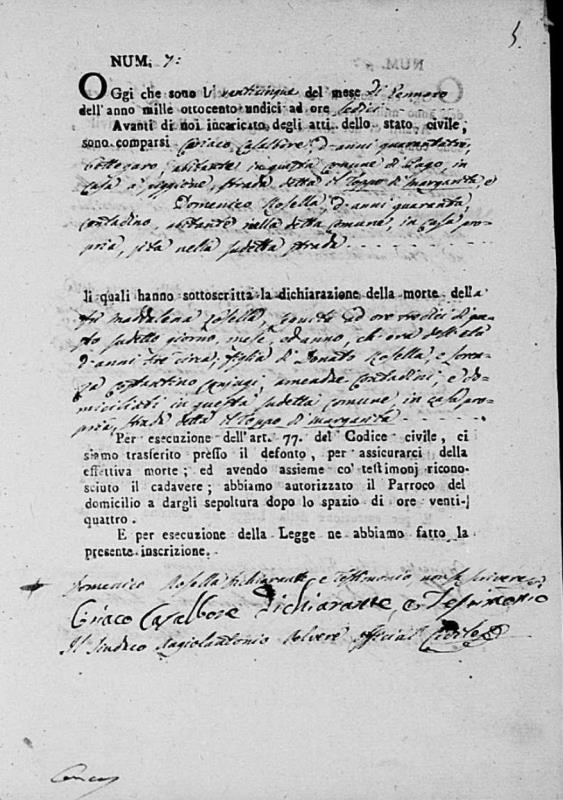 5
NUM. 7:
OGgi che sono li venticinque del mese di Gennaro
dell'anno mille ottocento undici ad ore sedici
Avanti di noi incaricato degli atti dello stato civile,
sono comparsi Ciriaco Casalbore d'anni quarantatre,
bottegaro, abitante in questa comune di Pago, in
casa a piggione, strada detta il Toppo di margarita, e
Domenico Rosella, d'anni quaranta,
contadino, abitante nella detta comune, in casa pro-
pria, sita nella sudetta strada
li quali hanno sottoscritta la dichiarazione della morte della
fu Maddalena Rosella, ad ore tredici di que-
sto sudetto giorno, mese, ed anno, ch'era dell'età
d'anni tre circa, figlia di Donato Rosella, e Loren-
za Costantino conjugi, amendue contadini, e do-
miciliati in questa sudetta comune in casa pro-
pria, strada detta il Toppo di margarita
Per esecuzione dell'art. 77. del Codice civile, ci
siamo trasferito presso il defonto, per assicurarci della
effettiva morte; ed avendo assieme co' testimonj ricono-
sciuto il cadavere; abbiamo autorizzato il Parroco del
domicilio a dargli sepoltura dopo lo spazio di ore venti-
quattro.
E per esecuzione della Legge ne abbiamo fatto la
presente inscrizione.
Domenico Rosella dichiarante e Testimonio non sa scrivere
Ciriaco Casalbore Dichiarante e Tesstimonio
Il Sindaco Angiolantonio Polvere Official Civile